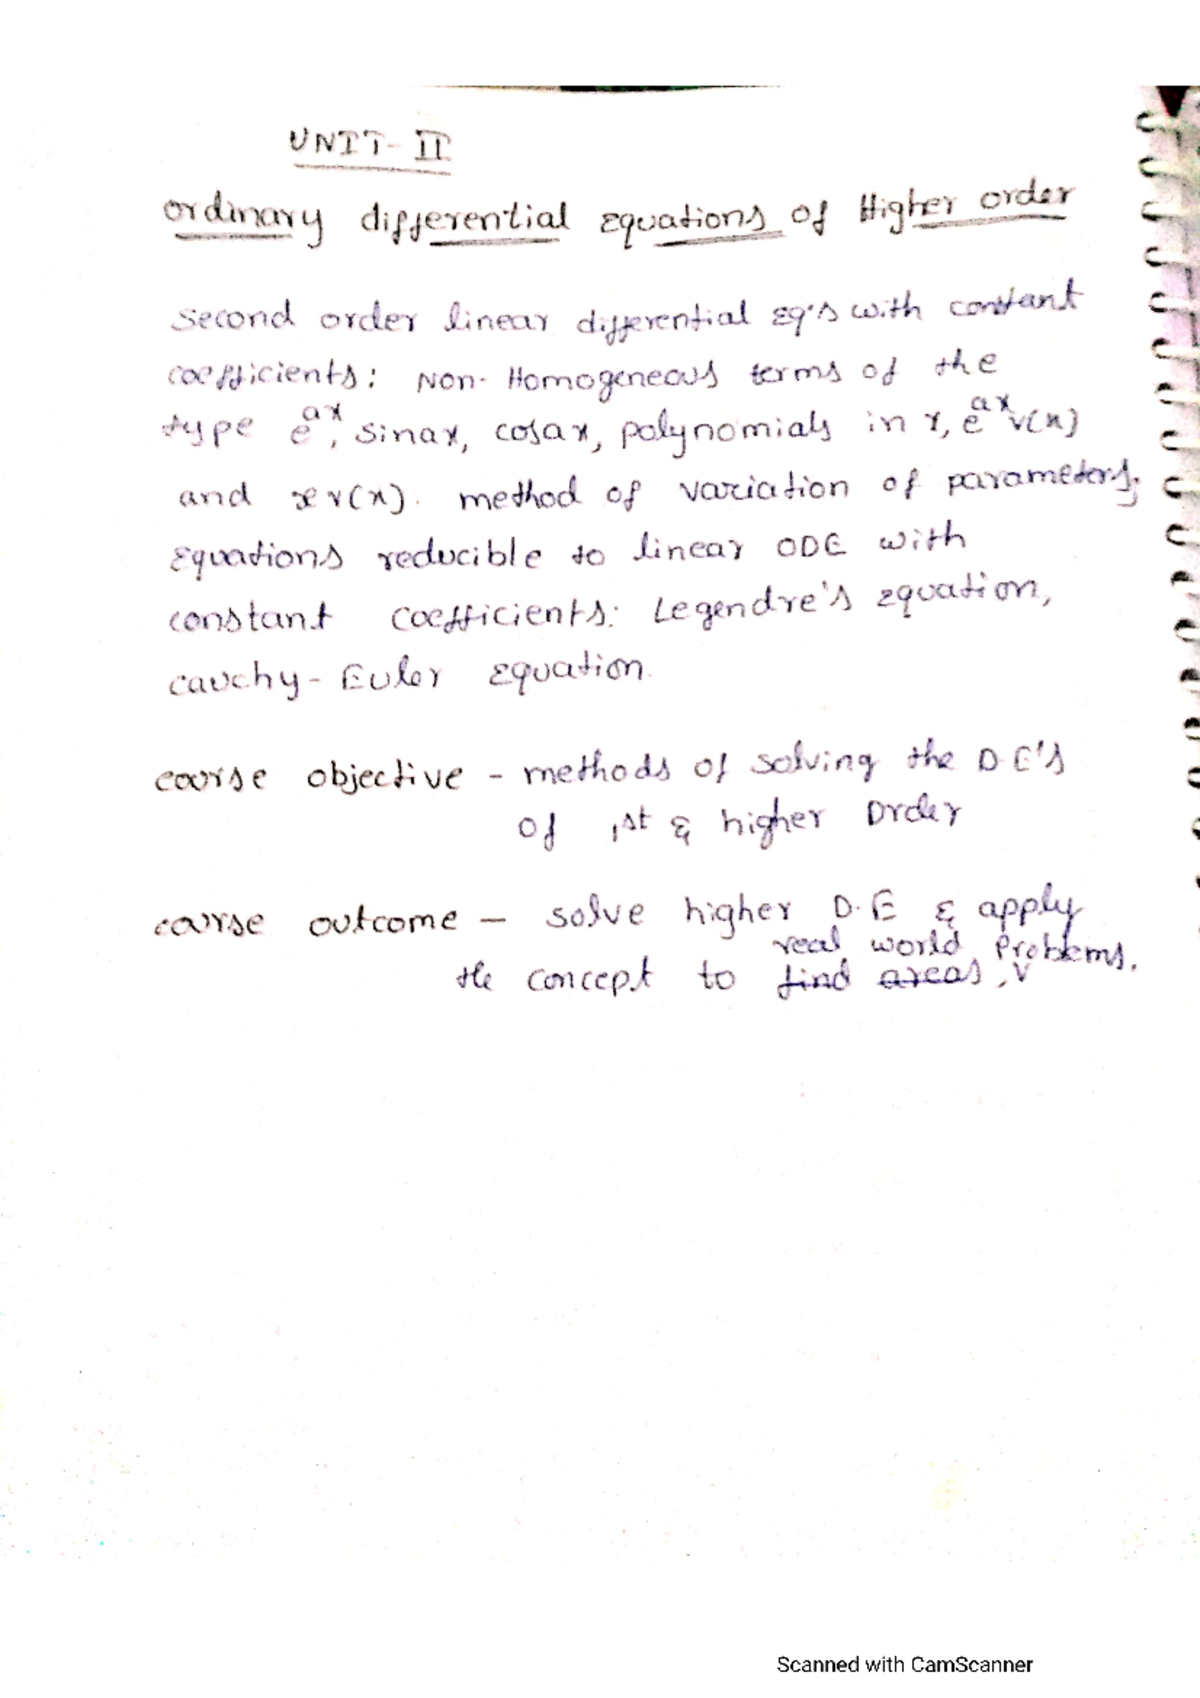 UNIT-II
ordinary differential Equations of Higher order
second order linear differential Eq's with constant
coefficients: Non-Homogeneous terms of the
type e^ax, sinax, cosax, polynomials in x, e^ax v(x)
and x v(x). method of variation of parameters;
Equations reducible to linear ODE with
constant coefficients: Legendre's equation,
cauchy-Euler Equation.
course objective - methods of solving the D.E's
of 1st & higher Order
course outcome - solve higher D.E & apply
real world Problems.
the concept to find areas, v
Scanned with CamScanner